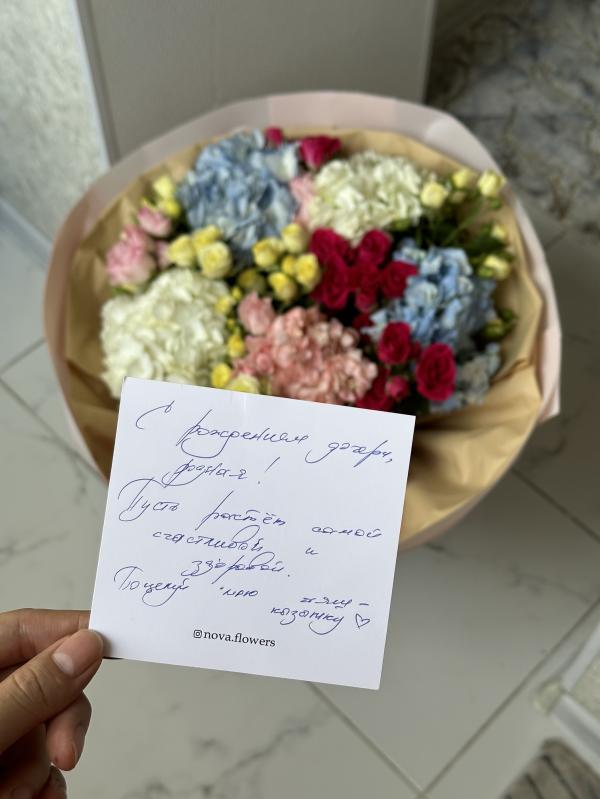 С рождением дочери,
родная!
Пусть растёт самой
счастливой и
здоровой.
Поцелуй мою
козочку ♡
@nova.flowers